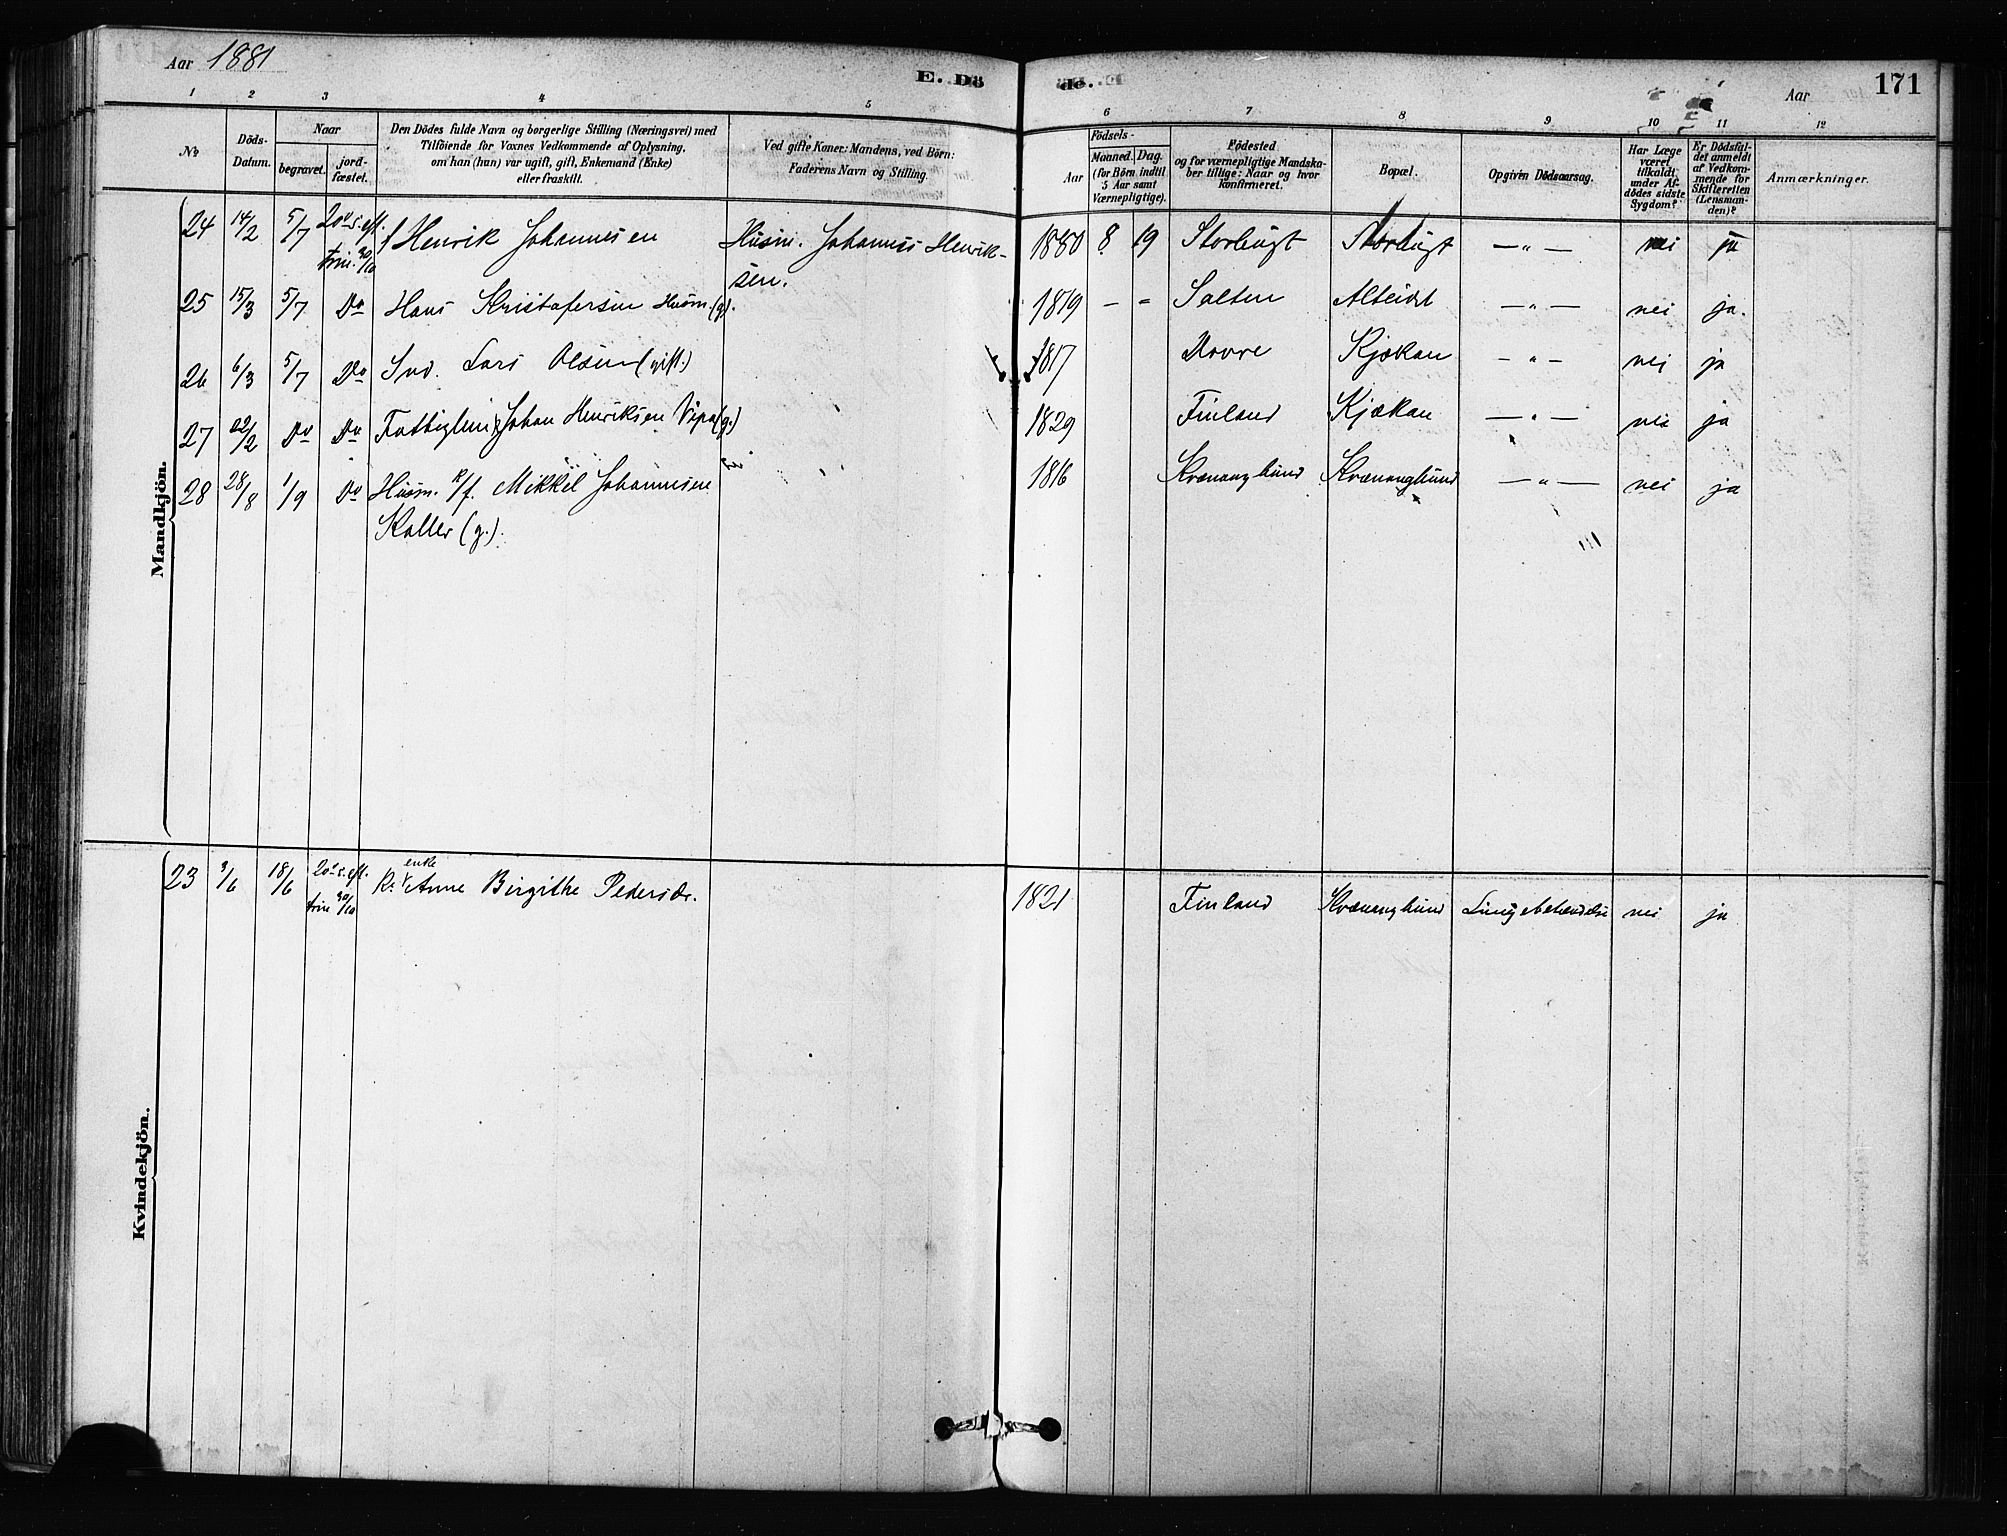 Aar 1881
E. Dö
de.
Aar
171
1 2 3 4 5 6 7 8 9 10 11 12
No
Döds-
Datum.
Naar
begravet.
jord-
fæstet.
Den Dödes fulde Navn og borgerlige Stilling (Næringsvei) med
Tilföiende for Voxnes Vedkommende af Oplysning,
om han (hun) var ugift, gift, Enkemand (Enke)
eller fraskilt.
Ved gifte Koner: Mandens, ved Börn:
Faderens Navn og Stilling.
Födsels-
Aar
Maaned.
Dag.
(for Börn indtil
5 Aar samt
Værnepligtige).
Födested
og for værnepligtige Mandska-
ber tillige: Naar og hvor
konfirmeret.
Bopæl.
Opgiven Dödsaarsag.
Har Læge
været
tilkaldt
under Af-
dödes sidste
Sygdom?
Er Dödsfal-
det anmeldt
af Vedkom-
mende for
Skifteretten
(Lensman-
den)?
Anmærkninger.
Mandkjön.
24 14/2 5/7 20de s. eft. Henrik Johannesen Husm. Johannes Henrik- 1880 8 19 Storbugt Storbugt — " — nei ja
trin. 30/10 sen.
25 15/3 5/7 Do Hans Kristofersen Husm. (g). 1819 - - Salten Alteidet — " — nei ja.
26 6/3 5/7 Do Ind. Lars Olsen (gift.) 1817 Dovre Kjækan — " — nei ja
27 22/2 Do Do Fattiglem Johan Henriksen Vipa (g.) 1829 Finland Kjækan — " — nei ja
28 28/8 1/9 Do Husm. K/f. Mikkel Johannesen 1816 Kvænangbund Kvænangbund — " — nei ja
Koller (g.).
Kvindekjön.
enke
23 9/6 18/6 20de s. eft. Anne Birgithe Pedersdr. 1821 Finland Kvænangbund Lungebetændelse nei ja
trin 30/10